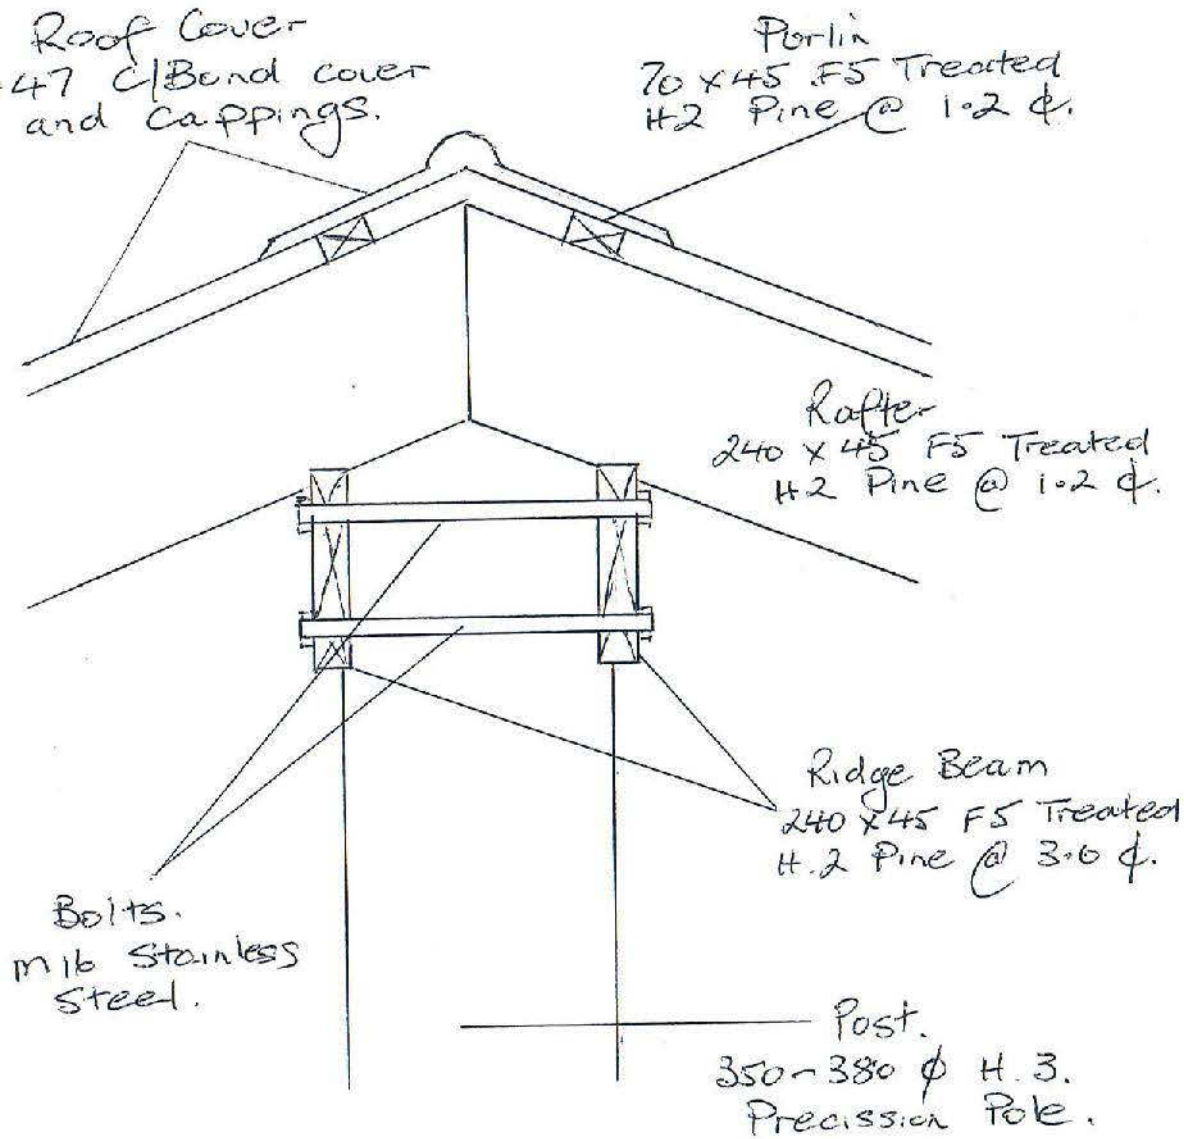 Roof Cover
47 C/Bond cover
and Cappings.
Purlin
70 x 45 F5 Treated
H2 Pine @ 1.2 ₵.
Rafter
240 x 45 F5 Treated
H.2 Pine @ 1.2 ₵.
Ridge Beam
240 x 45 F5 Treated
H.2 Pine @ 3.0 ₵.
Bolts.
M16 Stainless
Steel.
Post.
350-380 φ H.3.
Precission Pole.